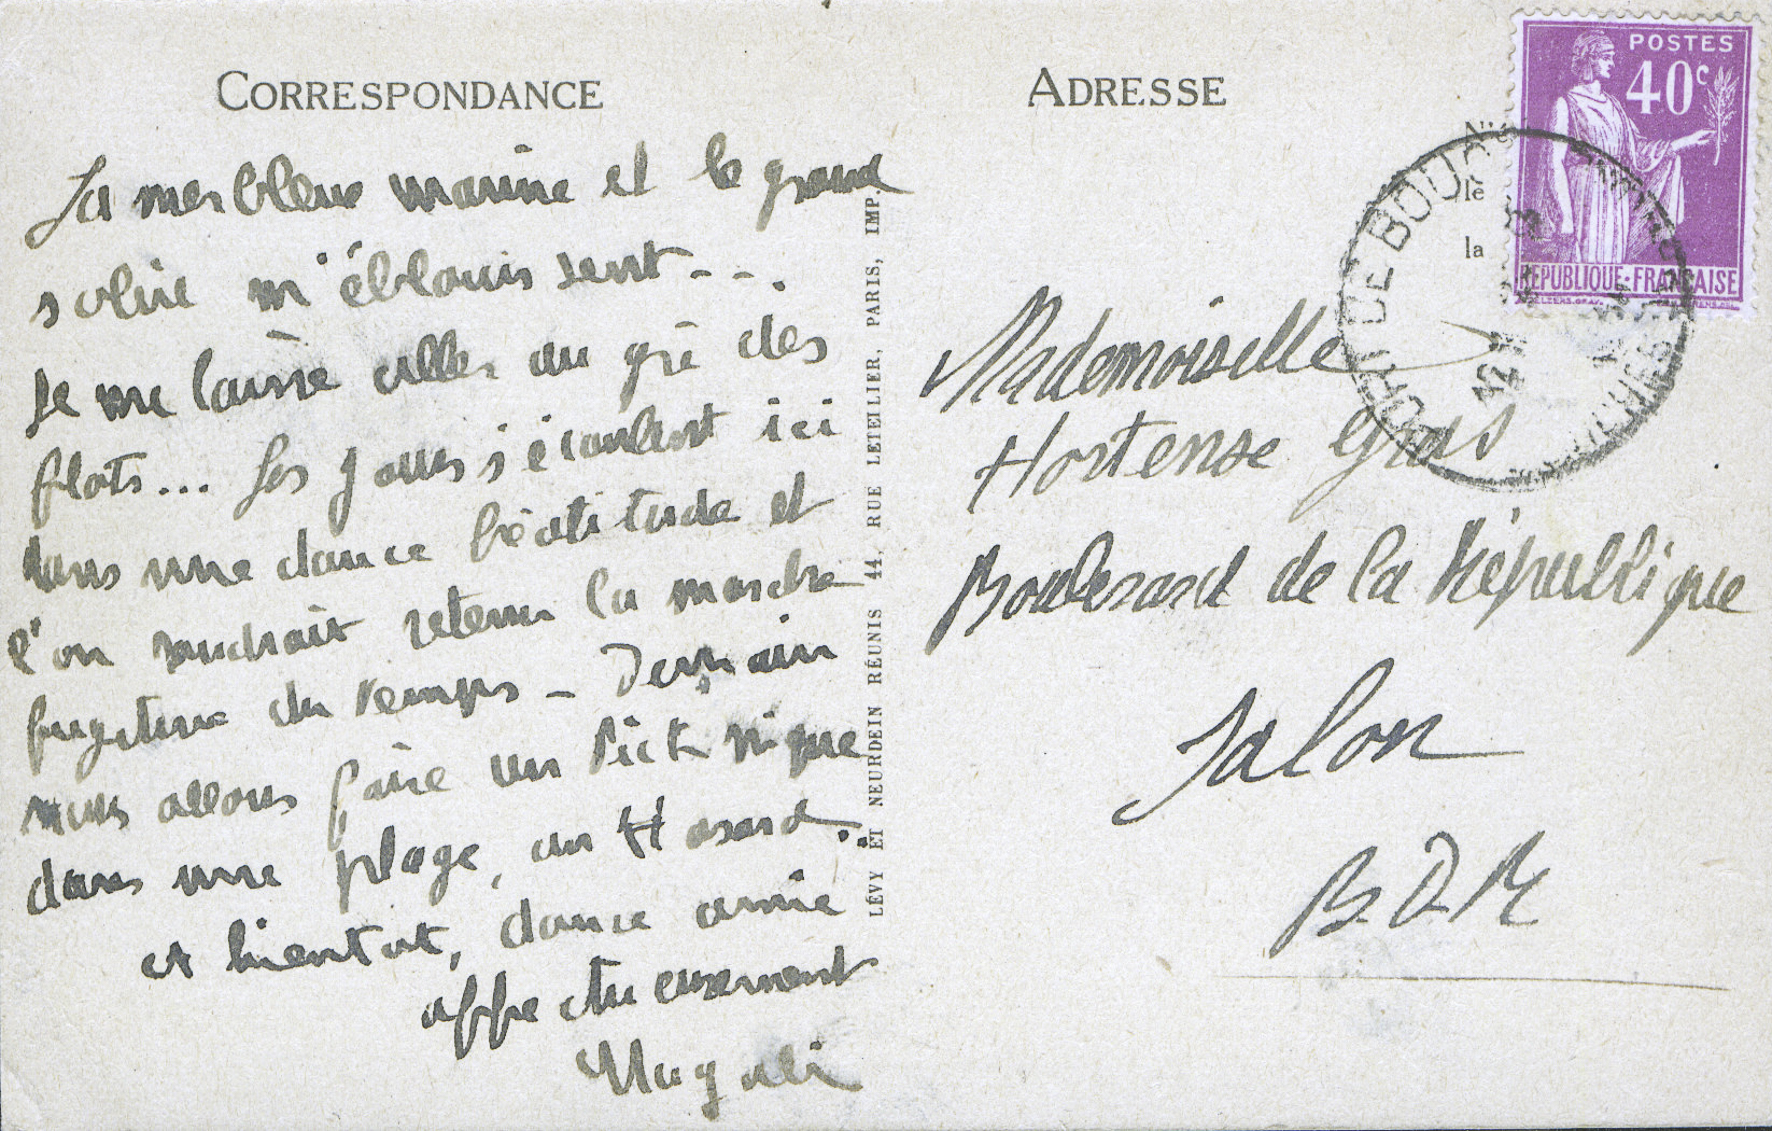 CORRESPONDANCE
La mer bleue marine et le grand
soleil m'éblouissent - - .
Je me laisse aller au gré des
flots... Les jours s'écoulent ici
dans une douce béatitude et
l'on voudrait retenir la marche
fugitive du temps - Demain
nous allons faire un Pick nique
dans une plage, au Hasard..
et bientot, douce amie
affectueusement
Magali
LÉVY ET NEURDEIN RÉUNIS 44, RUE LETELLIER, PARIS, IMP.
ADRESSE
POSTES
40c
RÉPUBLIQUE·FRANÇAISE
PORT DE BOUC
le
la
Mademoiselle
Hortense Gras
Boulevard de la République
Salon
B D R